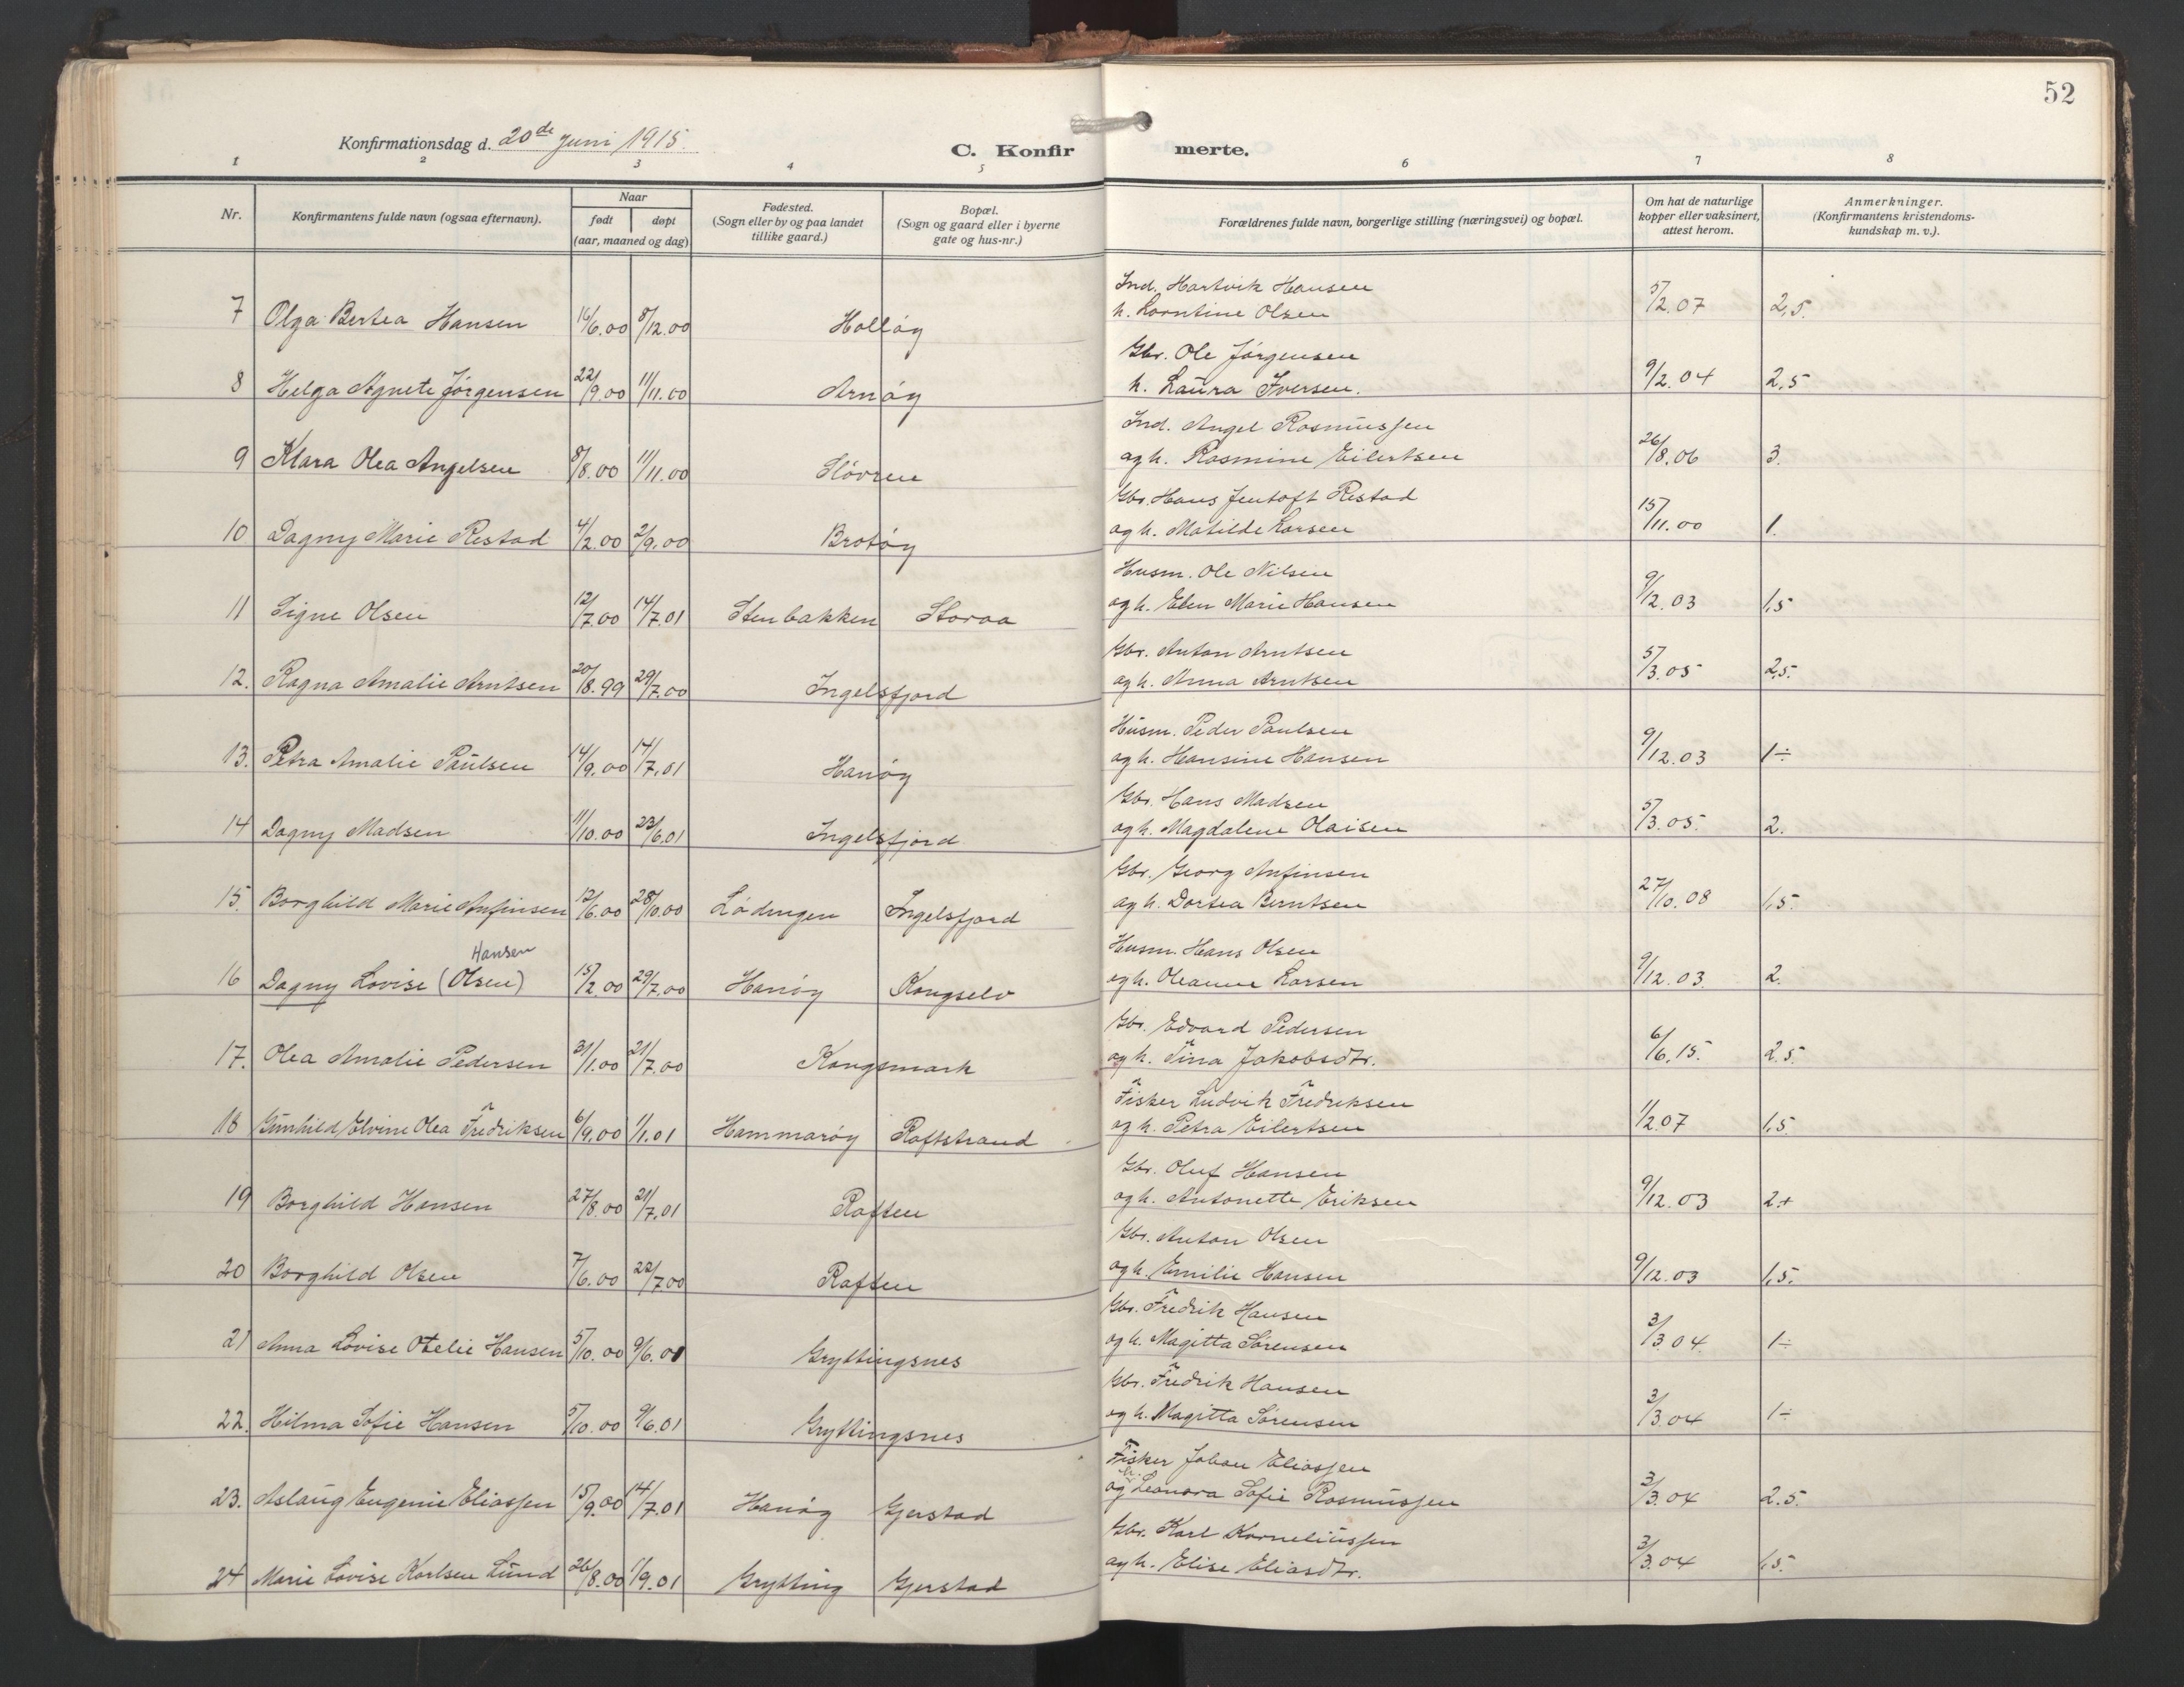 52
Konfirmationsdag d. 20de Juni 1915.
C. Konfirmerte.
1 2 3 4 5 6 7 8
Nr. Konfirmantens fulde navn (ogsaa efternavn). Naar født døpt (aar, maaned og dag) Fødested. (Sogn eller by og paa landet tillike gaard.) Bopæl. (Sogn og gaard eller i byerne gate og hus-nr.) Forældrenes fulde navn, borgerlige stilling (næringsvei) og bopæl. Om hat de naturlige kopper eller vaksinert, attest herom. Anmerkninger. (Konfirmantens kristendoms-kundskap m. v.).
Ind. Hartvik Hansen
7 Olga Bertea Hansen 16/6.00 8/12.00 Holløy h. Lorntine Olsen 5/2.07 2,5.
Gbr. Ole Jørgensen
8 Helga Agnete Jørgensen 22/9.00 11/11.00 Arnøy h. Laura Iversen. 9/2.04 2,5
Ind. Angel Rasmussen
9 Klara Olea Angelsen 8/8.00 11/11.00 Støvren og h. Rasmine Eilertsen 26/8.06 3.
Gbr. Hans Jentoft Restad
10 Dagny Marie Restad 4/2.00 2/9.00 Brotøy og h. Matilde Larsen 15/11.00 1.
Husm. Ole Nilsen
11 Signe Olsen 12/7.00 14/7.01 Stenbakken Storaa og h. Elen Marie Hansen 9/12.03 1,5
Gbr. Anton Arntsen
12. Ragna Amalie Arntsen 20/8.99 29/7.00 Ingelsfjord og h. Anna Arntsen 5/3.05 2,5.
Husm. Peder Paulsen
13. Petra Amalie Paulsen 14/9.00 14/7.01 Hanøy og h. Hansine Hansen 9/12.03 1÷
Gbr. Hans Madsen
14 Dagny Madsen 11/10.00 23/6.01 Ingelsfjord og h. Magdalene Olaisen 5/3.05. 2.
Gbr. Georg Anfinsen
15. Borghild Marie Anfinsen 12/6.00 28/10.00 Lødingen Ingelsfjord og h. Dortea Berntsen 27/10.08 1,5.
Hansen Husm. Hans Olsen
16 Dagny Lovise (Olsen) 15/2.00 29/7.00 Hanøy Kongselv og h. Oleanne Larsen 9/12.03. 2.
Gbr. Edvard Pedersen
17. Olea Amalie Pedersen 31/1.00 21/7.00 Kongsmark og h. Tina Jakobsdtr. 6/6.15. 2.5.
Fisker Ludvik Fredriksen
18 Gunhild Elvine Olea Fredriksen 6/9.00 1/1.01 Hammarøy Raftstrand og h. Petra Eilertsen 11/2.07 1,5.
Gbr. Oluf Hansen
19 Borghild Hansen 27/8.00 21/7.01 Raften og h. Antonette Eriksen 9/12.03 2+
Gbr. Anton Olsen
20 Borghild Olsen 7/6.00 22/7.00 Raften og h. Emilie Hansen 9/12.03 1,5.
Gbr. Fredrik Hansen
21 Anna Lovise Otelie Hansen 5/10.00 9/6.01 Gryttingsnes og h. Magitta Sørensen 3/3.04. 1÷
Gbr. Fredrik Hansen
22. Hilma Sofie Hansen 5/10.00 9/6.01 Gryttingsnes og h. Magitta Sørensen 3/3.04 1÷
Fisker Johan Eliassen
23. Aslaug Eugenie Eliassen 15/9.00 14/7.01 Hanøy Gjerstad og h. Leonora Sofie Rasmussen 3/3.04 2.5.
Gbr. Karl Korneliussen
24 Marie Lovise Karlsen Lund 26/8.00 1/9.01 Grytting Gjerstad og h. Elise Eliasdtr. 3/3.04 1,5.